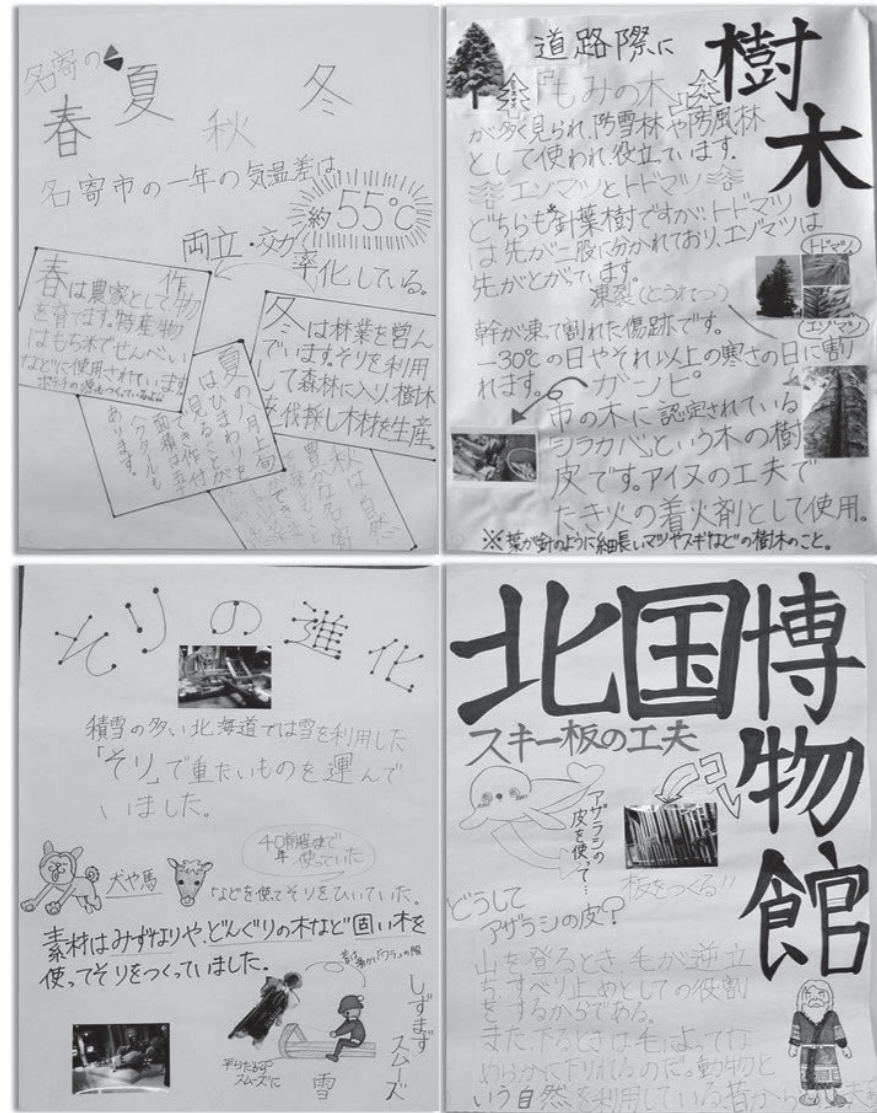 名寄の
春夏秋冬
名寄市の一年の気温差は
約55℃
両立・交
率化している。
春は農家として作物
を育てます。特産物
はもち米でせんべい
などに使用されています
冬は林業を営ん
でいます。そりを利用
して森林に入り、樹木
を伐採し木材を生産。
夏の八月上旬
はひまわりを
見ることが
でき作付
面積は
ヘクタールも
あります。
秋は自然
豊かな名寄
樹木
道路際に
『もみの木』
が多く見られ、防雪林や防風林
として使われ、役立ています。
エゾマツとトドマツ
どちらも※針葉樹ですが、トドマツ
は先が二股に分かれており、エゾマツは
先がとがっています。
トドマツ
エゾマツ
凍裂(とうれつ)
幹が凍って割れた傷跡です。
-30℃の日やそれ以上の寒さの日に割
れます。
ガンピ
市の木に認定されている
「シラカバ」という木の樹
皮です。アイヌの工夫で
たき火の着火剤として使用。
※葉が針のように細長いマツやスギなどの樹木のこと。
そりの進化
積雪の多い北海道では雪を利用した
「そり」で重たいものを運んで
いました。
40年前程まで
使っていた
犬や馬
などを使ってそりをひいていた。
素材はみずなりや、どんぐりの木など固い木を
使ってそりをつくっていました。
しずまず
スムーズ
平らだから
スムーズに
雪
北国博物館
スキー板の工夫
アザラシの
皮を使って…
コレ
板をつくる!!
どうして
アザラシの皮?
山を登るとき、毛が逆立
ち、すべり止めとしての役割
をするからである。
また、下るときは毛によってな
めらかに下りれるのだ。動物と
いう自然を利用している昔から